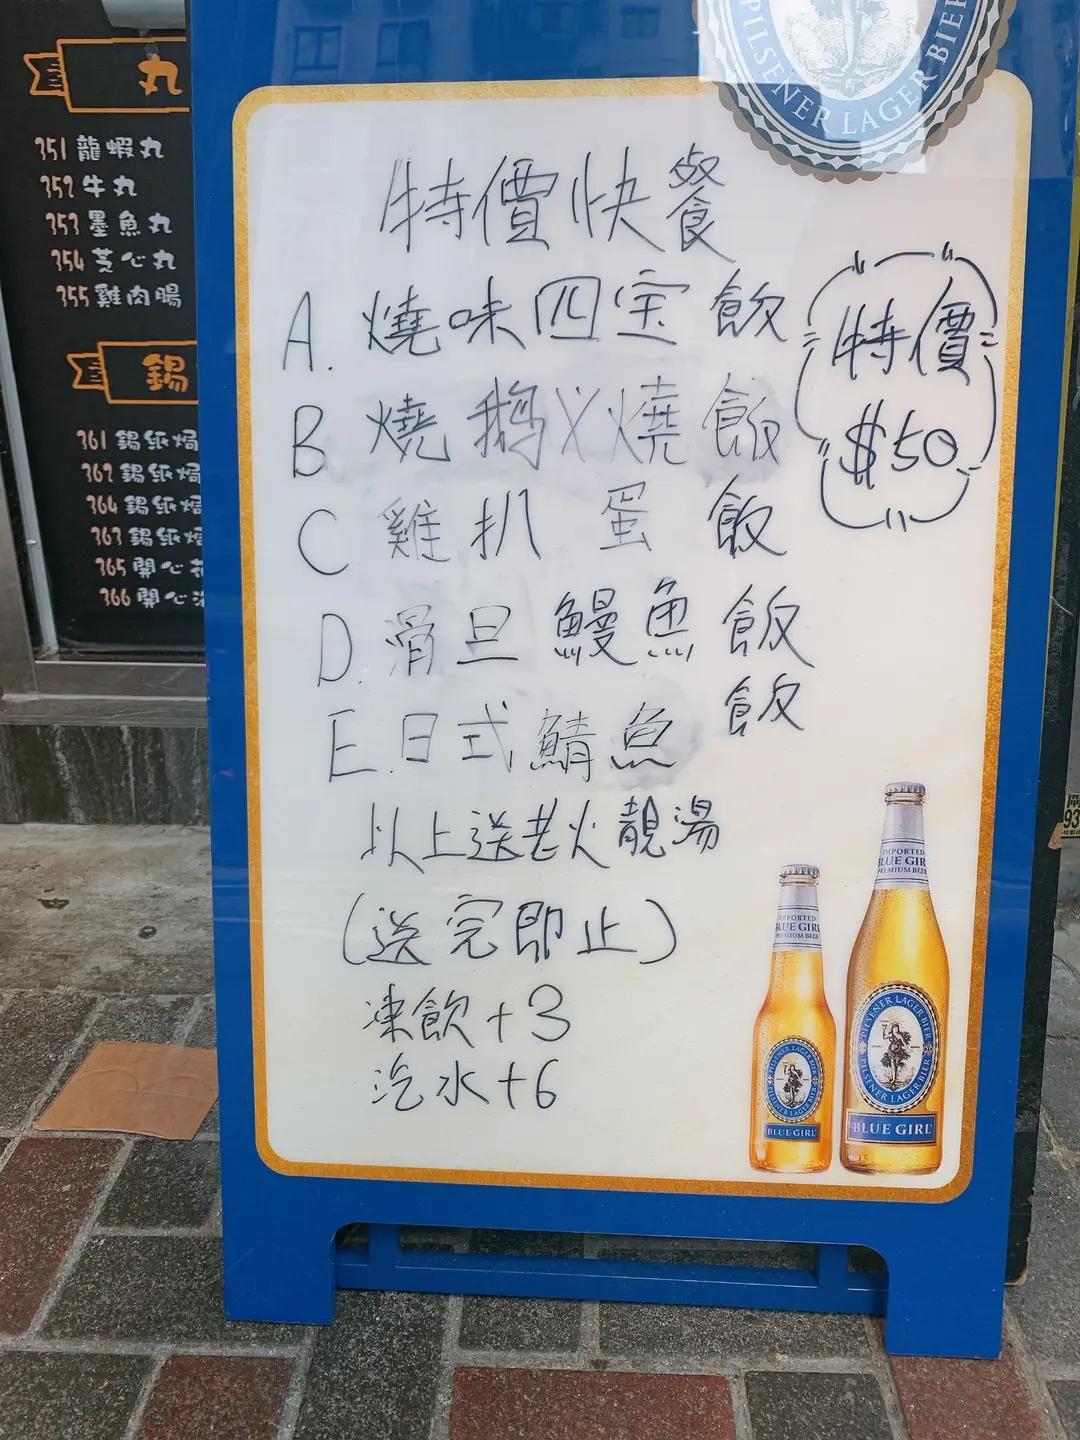 丸
351 龍蝦丸
352 牛丸
353 墨魚丸
354 芝心丸
355 雞肉腸
錫
361 錫紙焗
362 錫紙焗
364 錫紙焗
363 錫紙焗
365 開心
366 開心
PILSENER LAGER BIER
特價快餐
A. 燒味四宝飯
B 燒鵝乂燒飯
C 雞扒蛋飯
D. 滑旦鰻魚飯
E. 日式鯖魚飯
特價
$50
以上送老火靚湯
(送完即止)
凍飲+3
汽水+6
IMPORTED
BLUE GIRL
PREMIUM BEER
PILSENER LAGER BIER
BLUE GIRL
IMPORTED
BLUE GIRL
PREMIUM BEER
PILSENER LAGER BIER
PILSENER LAGER BIER
BLUE GIRL